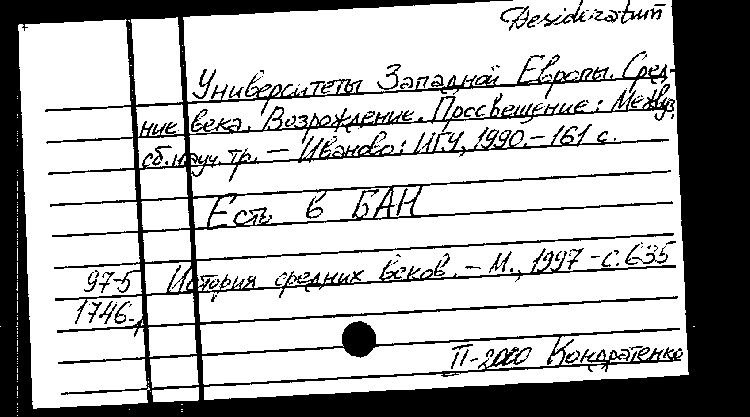 Desideratum
Университеты Западной Европы. Сред-
ние века. Возрождение. Просвещение: Межвуз.
сб. науч. тр. — Иваново: ИГУ, 1990. — 161 с.
Есть в БАН
97-5 История средних веков. — М., 1997 — с. 635
1746-
П-2000 Кондратенко